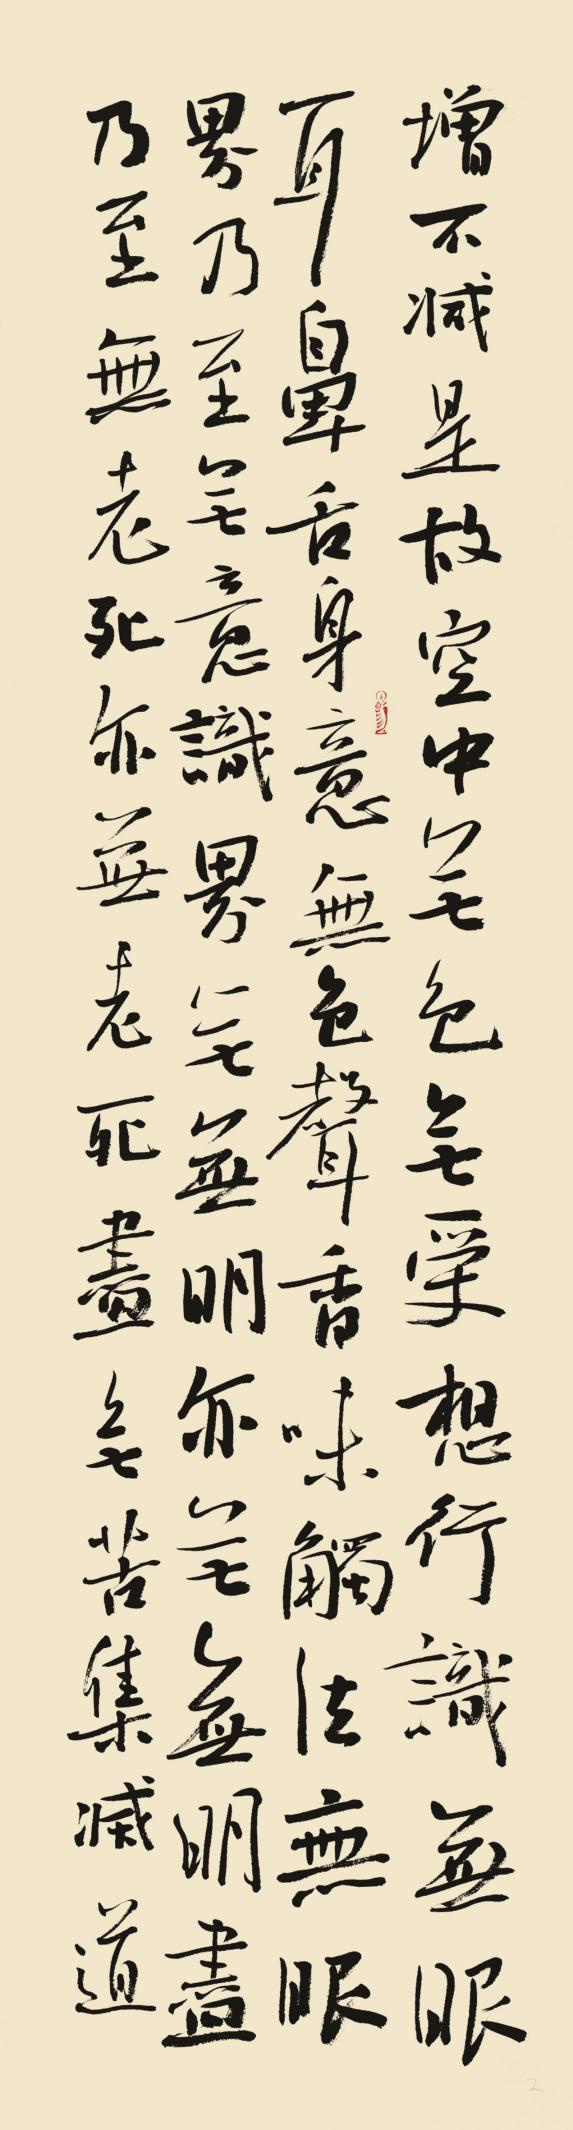 增不減是故空中無色無受想行識無眼
耳鼻舌身意無色聲香味觸法無眼
界乃至無意識界無無明亦無無明盡
乃至無老死亦無老死盡無苦集滅道